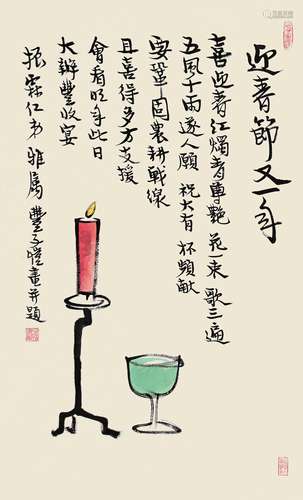 迎春節又一年
喜迎春紅燭青尊艷 花一束 歌三遍
五風十雨遂人願 祝大有 杯頻獻
要鞏固農耕戰線
且喜得多方支援
會看明年此日
大辦豐收宴
振霖仁弟雅屬 豐子愷畫并題